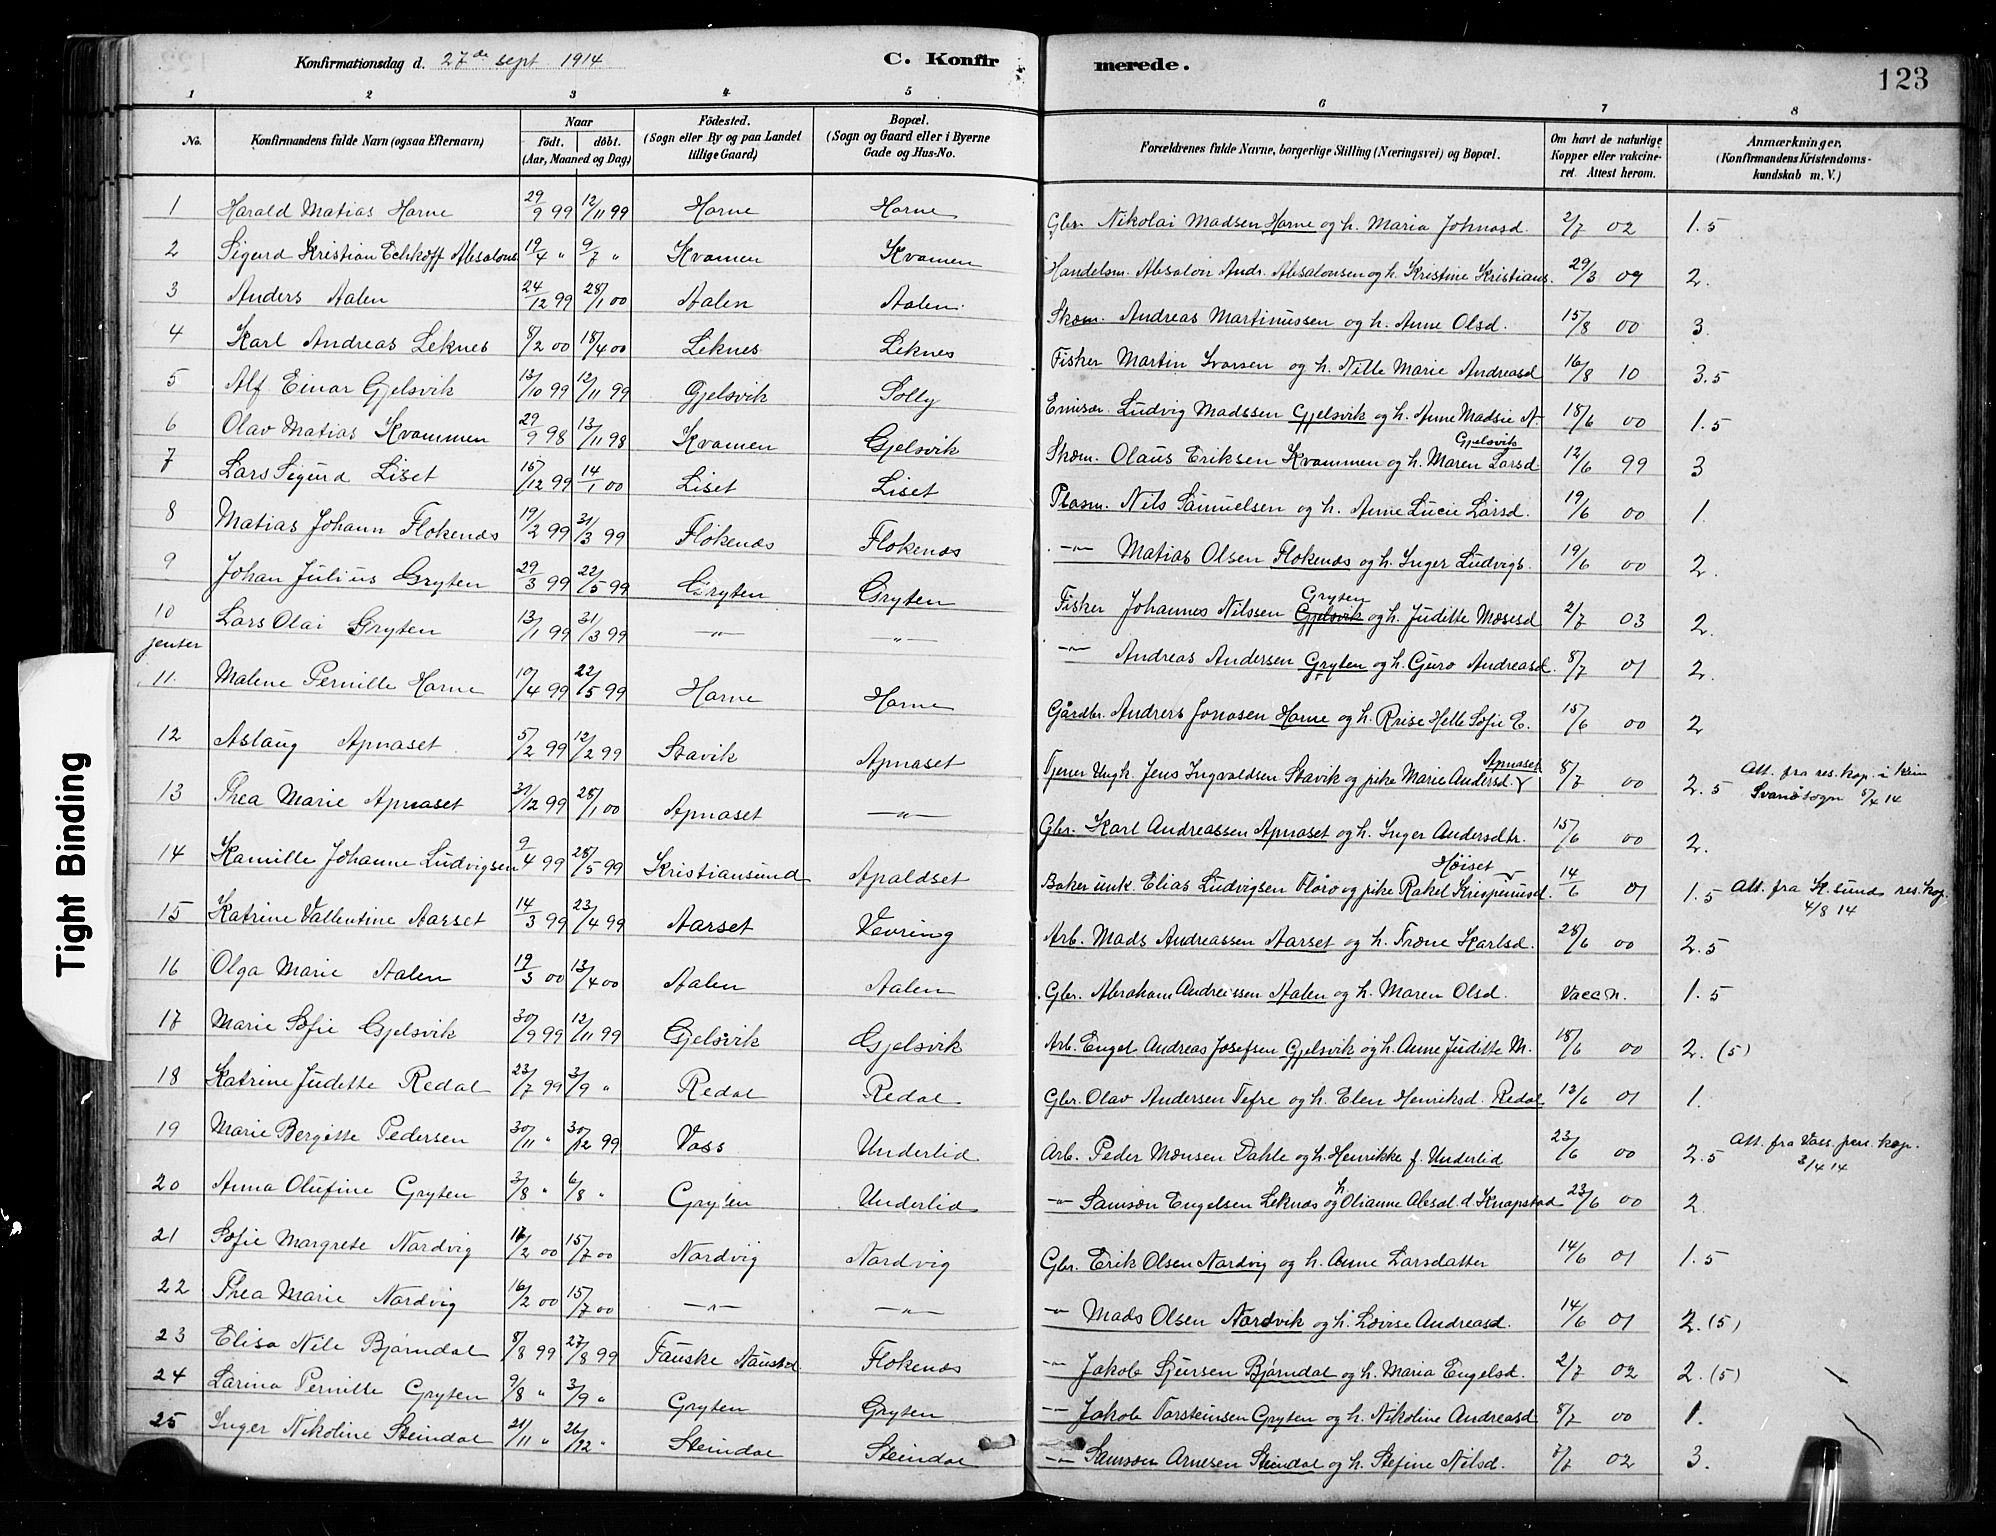 Konfirmationsdag d. 27de sept 1914 C. Konfirmerede. 123
1 2 3 4 5 6 7 8
No. Konfirmandens fulde Navn (ogsaa Efternavn) Naar født. døbt. (Aar, Maaned og Dag) Fødested. (Sogn eller By og paa Landet tillige Gaard) Bopæl. (Sogn og Gaard eller i Byerne Gade og Hus-No. Forældrenes fulde Navne, borgerlige Stilling (Næringsvei) og Bopæl. Om havt de naturlige Kopper eller vakcineret. Attest herom. Anmærkninger. (Konfirmandens Kristendomskundskab m. V.)
1 Harald Matias Horne 29/9 99 12/11 99 Horne Horne Gbr. Nikolai Madsen Horne og h. Maria Johnasd. 2/7 02 1.5
2 Sigurd Kristian Echkoff Absalons 19/4 " 9/7 " Kvamen Kvamen Handelsm. Absalon Andr. Absalonsen og h. Kristine Kristians. 29/3 09 2.
3 Anders Aalen 24/12 99 28/1 00 Aalen Aalen Skom. Andreas Martinussen og h. Anne Olsd. 15/8 00 3.
4 Karl Andreas Leknes 8/2 00 18/4 00 Leknes Leknes Fisker Martin Ivarsen og h. Nille Marie Andreasd 16/8 10 3.5
5 Alf Einar Gjelsvik 13/10 99 12/11 99 Gjelsvik Solly Emisær. Ludvig Madssen Gjelsvik og h. Anne Madsie N. 18/6 00 1.5
6 Olav Matias Kvammen 29/9 98 13/11 98 Kvamen Gjelsvik Skom. Olaus Eriksen Kvammen og h. Maren Larsd. Gjelsvik 12/6 99 3
7 Lars Sigurd Liset 15/12 99 14/1 00 Liset Liset Plasm. Nils Samuelsen og h. Anne Lucie Larsd. 19/6 00 1.
8 Matias Johann Flokenæs 19/2 99 31/3 99 Flokenæs Flokenæs -"- Matias Olsen Flokenæs og h. Inger Ludvigs. 19/6 00 2.
9 Johan Julius Gryten 29/3 99 22/5 99 Gryten Gryten Fisker Johannes Nilssen Gjelsvik Gryten og h. Juditte Mosesd 2/7 03 2.
10 Lars Olai Gryten 13/1 99 31/3 99 -"- -"- -"- Andreas Andersen Gryten og h. Guro Andreasd. 8/7 01 2.
jenter
11. Malene Pernille Horne 10/4 99 22/5 99 Horne Horne Gårdbr. Andrers Jonasen Horne og h. Helle Sofie E. 15/6 00 2
12 Aslaug Apnaset 5/2 99 12/2 99 Stavik Apnaset Tjener Ungk. Jens Ingvaldsen Stavik og pike Marie Andersd. Apnaset 8/7 00 2.5 Att. fra res. kap. i Svanøsogn 5/4 14
13 Thea Marie Apnaset 31/12 99 28/1 00 Apnaset -"- Gbr. Karl Andreassen Apnaset og h. Inger Andersdtr. 15/6 00 2.
14 Kamille Johanne Ludvigsen 9/4 99 28/5 99 Kristiansund Apaldset Baker unk. Elias Ludvigsen Florø og pike Rakel Krispinusd. Høiset 14/6 01 1.5 Att. fra K.sund res. kap. 4/8 14
15 Katrine Vallentine Aarset 14/3 99 23/4 99 Aarset Vevring Arb. Mads Andreassen Aarset og h. Trone Karlsd. 28/6 00 2.5
16 Olga Marie Aalen 19/3 00 13/4 00 Aalen Aalen Gbr. Abraham Andreassen Aalen og h. Maren Olsd. Vacc n. 1.5
17 Marie Sofie Gjelsvik 30/9 99 12/11 99 Gjelsvik Gjelsvik Arb. Engel Andreas Josefsen Gjelsvik og h. Anne Juditte M. 18/6 00 2. (5)
18 Katrine Judette Redal 23/7 99 3/9 " Redal Redal Gbr. Olav Andersen Tefre og h. Elen Henriksd. Redal 13/6 01 1.
19 Marie Bergitte Pedersen 30/11 " 30/12 99 Voss Underlid Arb. Peder Monsen Dahle og h. Henrikke f. Underlid 23/6 00 2.5 Att. fra Voss pers. kap. 3/4 14
20 Anna Olufine Gryten 3/8 " 6/8 " Gryten Underlid -"- Samson Engelsen Leknæs og h. Olianne Absd. d. Knapstad 23/6 00 2.
21 Sofie Margrete Nordvig 16/2 00 15/7 00 Nordvig Nordvig Gbr. Erik Olsen Nordvig og h. Anne Larsdatter 14/6 01 1.5
22 Thea Marie Nordvig 16/2 00 15/7 00 -"- -"- -"- Mads Olsen Nordvik og h. Lovise Andreasd. 14/6 01 2.(5)
23 Elisa Nile Bjørndal 8/8 99 27/8 99 Fauske Naustd. Flokenæs -"- Jakob Sjursen Bjørndal og h. Maria Engelsd. 2/7 02 2.(5)
24 Larina Pernille Gryten 9/8 " 3/9 " Gryten Gryten -"- Jakob Torsteinsen Gryten og h. Nikoline Andreasd 8/7 00 1.
25 Inger Nikoline Steindal 21/11 " 26/12 " Steindal Steindal -"- Samson Arnesen Steindal og h. Stefine Nilsd. 7/7 02 3.
Tight Binding